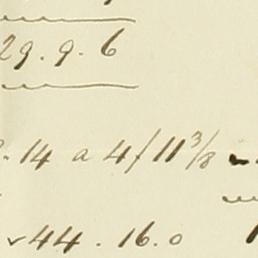 29.9.6
.14 a 4/11 3/8
44.16.0